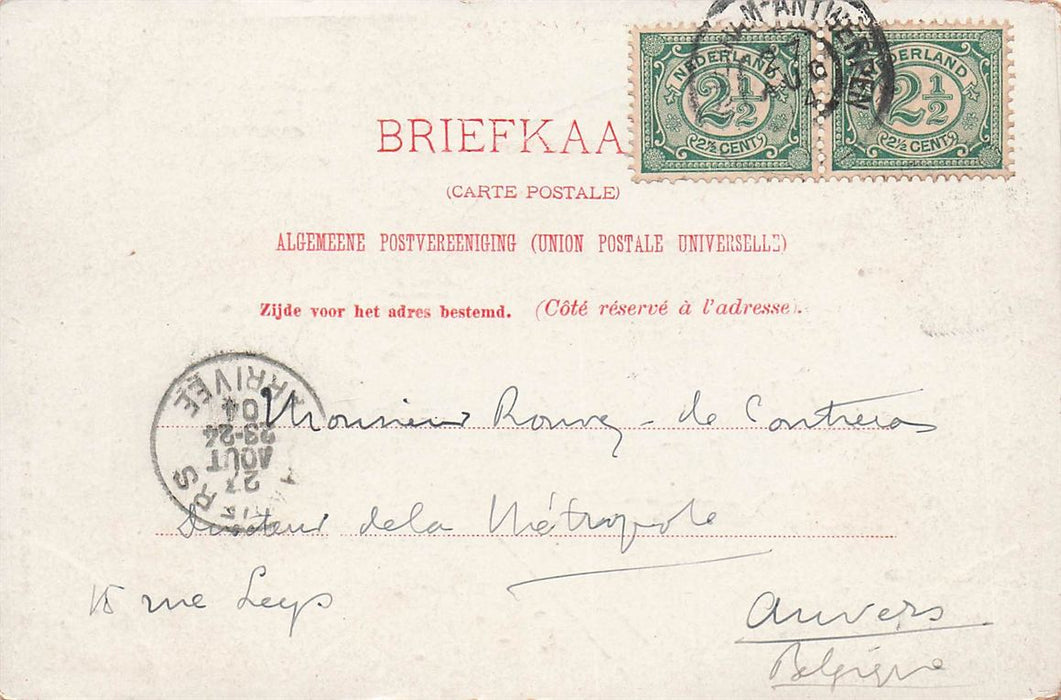 NEDERLAND
2½
2½ CENT
NEDERLAND
2½
2½ CENT
BRIEFKAA
(CARTE POSTALE)
ALGEMEENE POSTVEREENIGING (UNION POSTALE UNIVERSELLE)
Zijde voor het adres bestemd. (Côté réservé à l'adresse).
ARRIVEE
04
23-24
AOUT
27
Monsieur de Contreras
Directeur de la Métropole
15 rue Leys
Anvers
Belgique